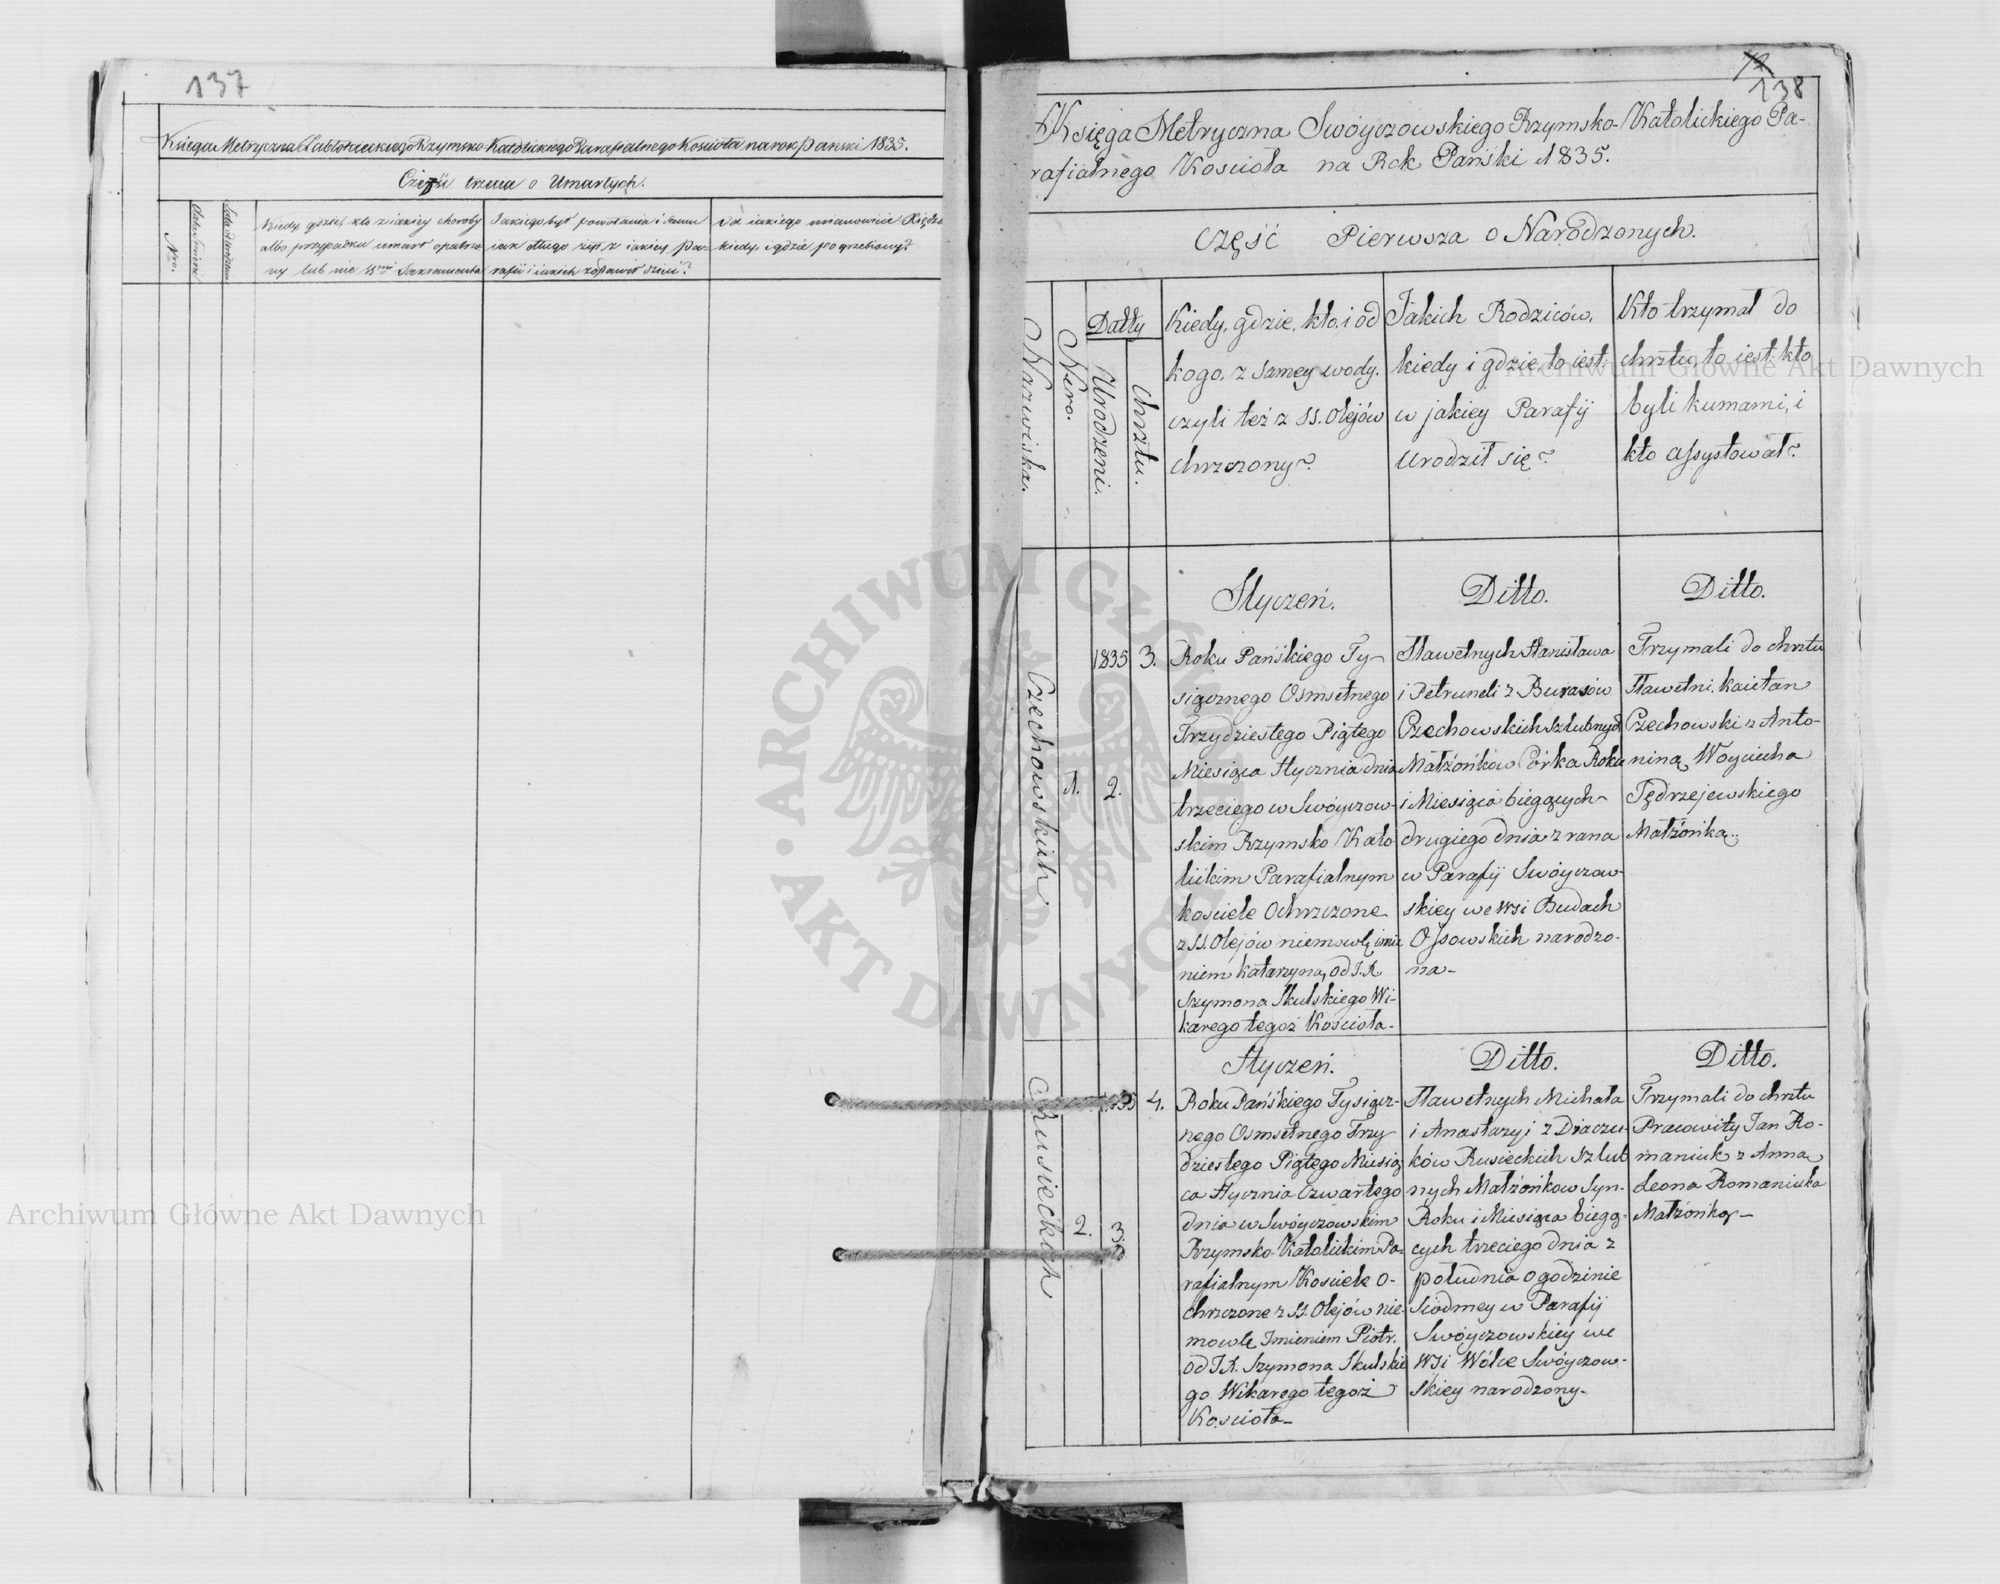 137
Księga Metryczna Łabłokieckiego Rzymsko-Katolickiego Parafialnego Kościoła na rok Pański 1835.
Części trzecia o Umarłych.
Nro.
Kiedy, gdzie, kto z jakiey choroby
albo przypadku umarł opatrzo-
ny lub nie SS. Sakramenta
Jakiego był powołania i stanu
iak długo żył, z iakiey Pa-
rafii i iakich zostawił dzieci?
Od iakiego mianowicie Księdza
kiedy i gdzie pogrzebiony?
138
Księga Metryczna Swóyczowskiego Rzymsko-Katolickiego Pa-
rafialnego Kościoła na Rok Pański 1835.
Część Pierwsza o Narodzonych.
Nazwiska.
Nero.
Datty
Urodzeni.
Chrztu.
Kiedy, gdzie, kto, i od
kogo, z samey wody,
czyli też z SS. Olejów
chrzczony?
Jakich Rodziców,
kiedy i gdzie, to iest:
w jakiey Parafij
urodził się?
Kto trzymał do
chrztu, to iest: kto
byli kumami, i
kto assystował?
Styczeń.
Ditto.
Ditto.
Czechowskich
1.
1835
2.
3.
Roku Pańskiego Ty-
siącznego Osmsetnego
Trzydziestego Piątego
Miesiąca Stycznia dnia
trzeciego w Swóyczow-
skim Rzymsko Kato-
lickim Parafialnym
kościele Ochrzczone
z SS. Olejów niemowlę imie
niem Katarzyna, od J.X
Szymona Skulskiego Wi-
karego tegoż Kościoła-
Sławetnych Stanisława
i Petruneli z Burasów
Czechowskich szlubnych
Małżonków Córka Roku
i Miesiąca biegących
drugiego dnia z rana
w Parafij Swóyczow-
skiey we wsi Budach
Ossowskich narodzo-
na-
Trzymali do chrztu
Sławetni, Kaietan
Czechowski z Anto-
niną Woyciecha
Jędrzejewskiego
Małżonką.
Styczeń.
Ditto.
Ditto.
Rusieckich
2.
3.
4.
Roku Pańskiego Tysiącz-
nego Osmsetnego Trzy
dziestego Piątego Miesią
ca Stycznia Czwartego
dnia w Swóyczowskim
Rzymsko-Katolickim Pa-
rafialnym Kościele O-
chrzczone z SS. Olejów nie-
mowle Imieniem Piotr.
od J.X. Szymona Skulskie
go Wikarego tegoż
Kościoła-
Sławetnych Michała
i Anastazyi z Draczu-
ków Rusieckich szlub
nych Małżonkow Syn-
Roku i Miesiąca biegą-
cych trzeciego dnia z
południa o godzinie
siódmey w Parafij
Swóyczowskiey we
wsi Wólce Swóyczow-
skiey narodzony-
Trzymali do chrztu
Pracowity Jan Ro-
maniuk z Anną
Leona Romaniuka
Małżonką-
Archiwum Główne Akt Dawnych
Archiwum Główne Akt Dawnych
ARCHIWUM GŁÓWNE AKT DAWNYCH